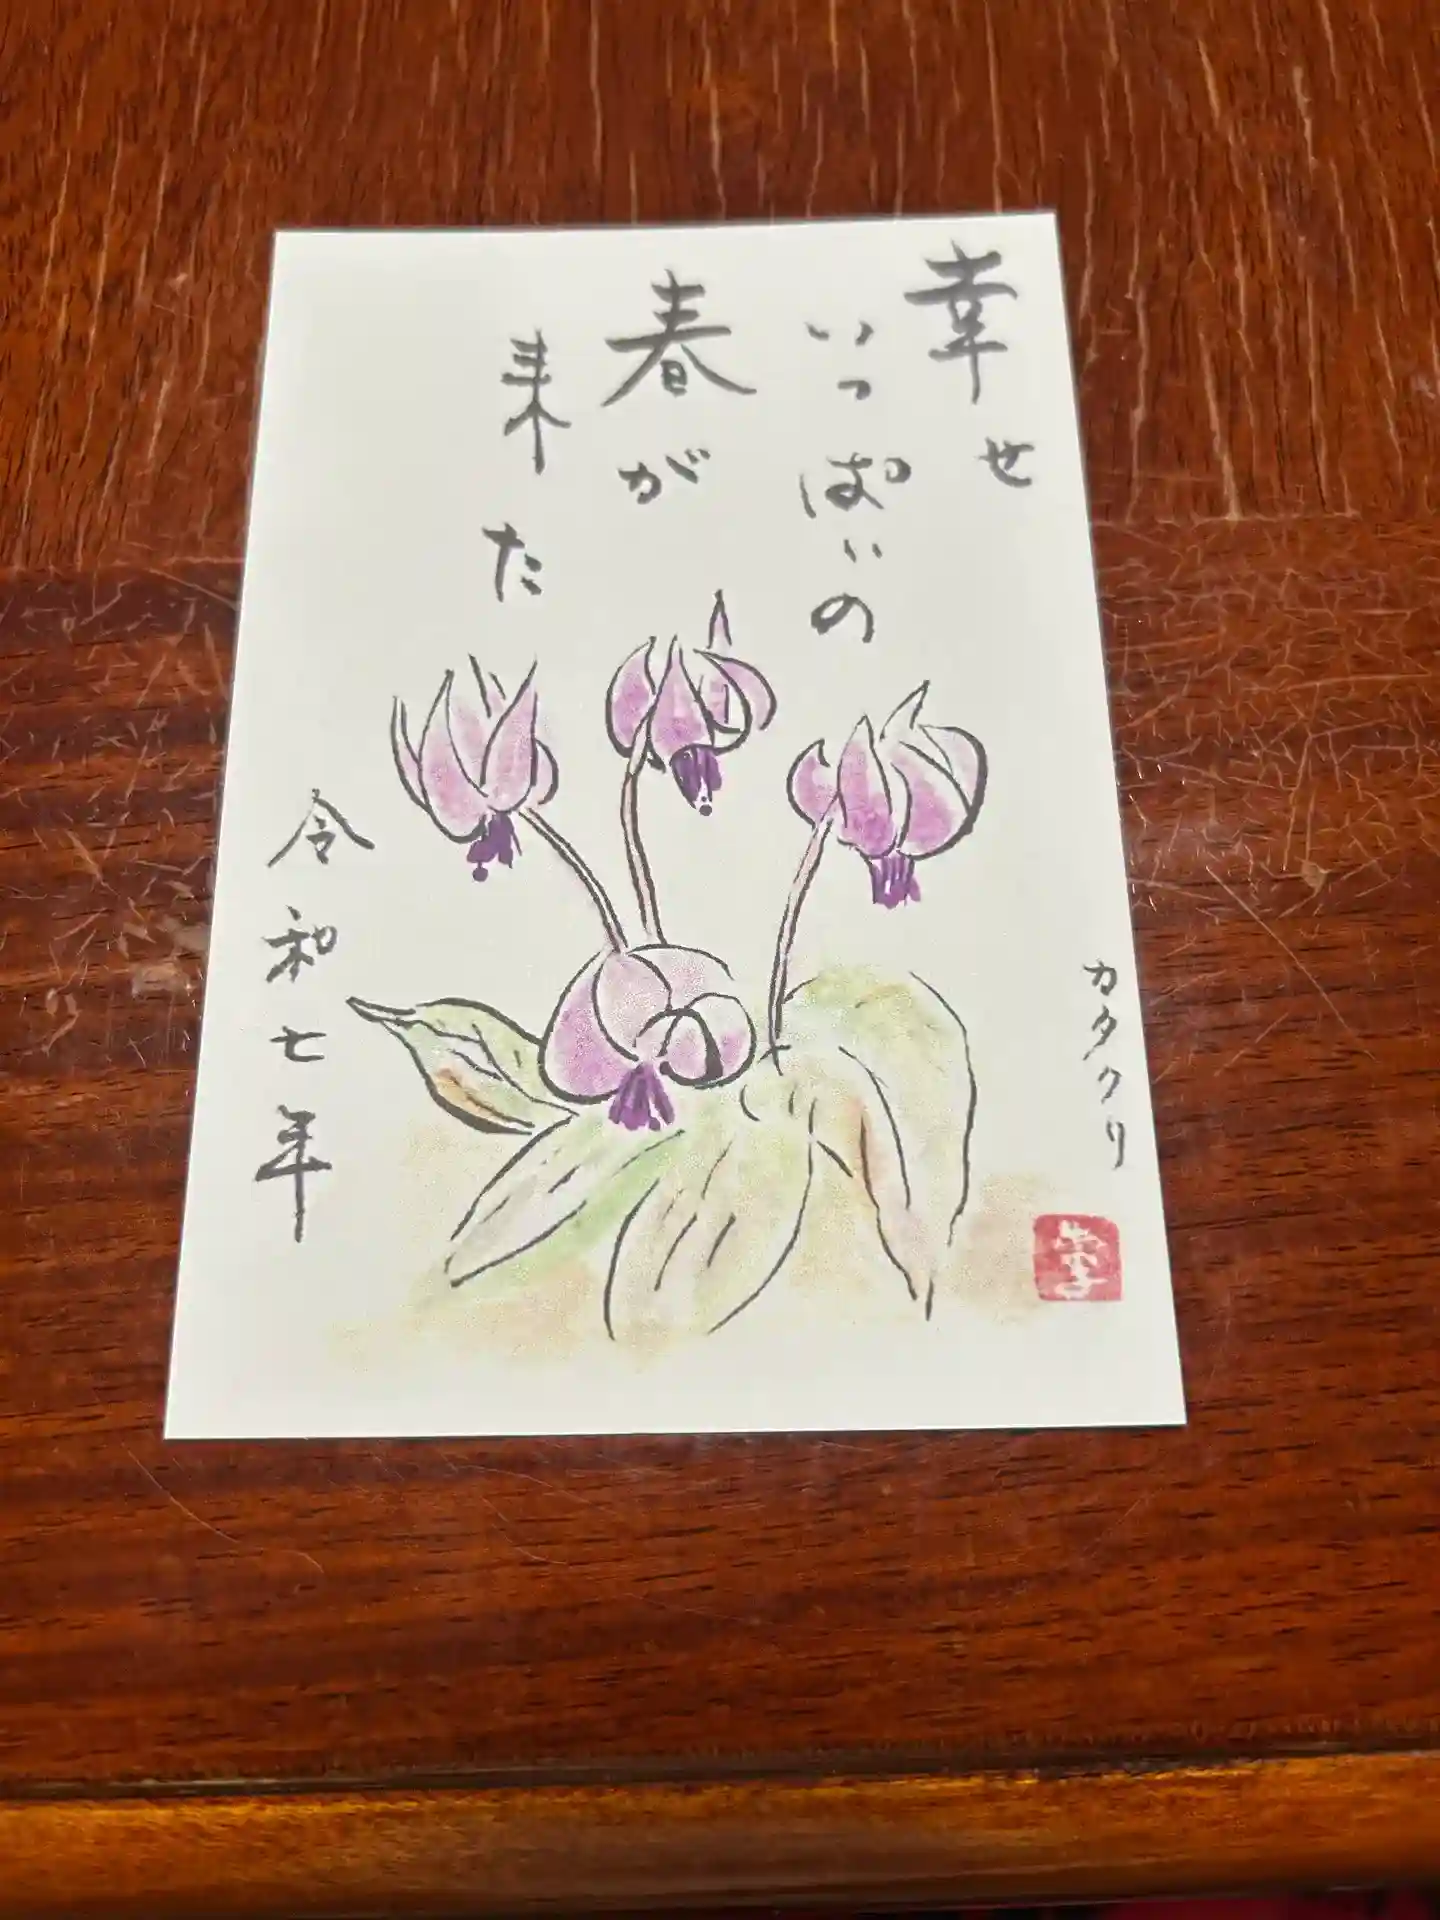 幸せ
いっぱいの
春が
来た
カタクリ
令和七年